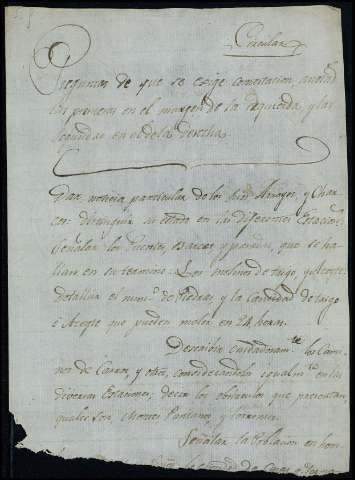 Circular
Preguntas de que se exige contestacion, anotad.s
las primeras en el margen de la Izquierda, y las
segundas en el de la derecha.
Dar noticia particular de los Rios, Arroyos, y Char
cos: distinguir su estado en las diferentes Estacion.s
Señalar los Puentes, Barcas y puentes, que se ha
llan en su termino: Los molinos de trigo, y Aceyte
detallar el num.o de Piedras y la Cantidad de trigo
ò Aceyte que pueden moler en 24 horas.
Describir cuidadosam.te los Cami
nos de Carros, y otros, considerandolos igualm.te en las
diversas Estaciones, decir los obstaculos que presentan,
quales son, Montes Pantanos y torrentes.
Señalar la Poblacion en hom